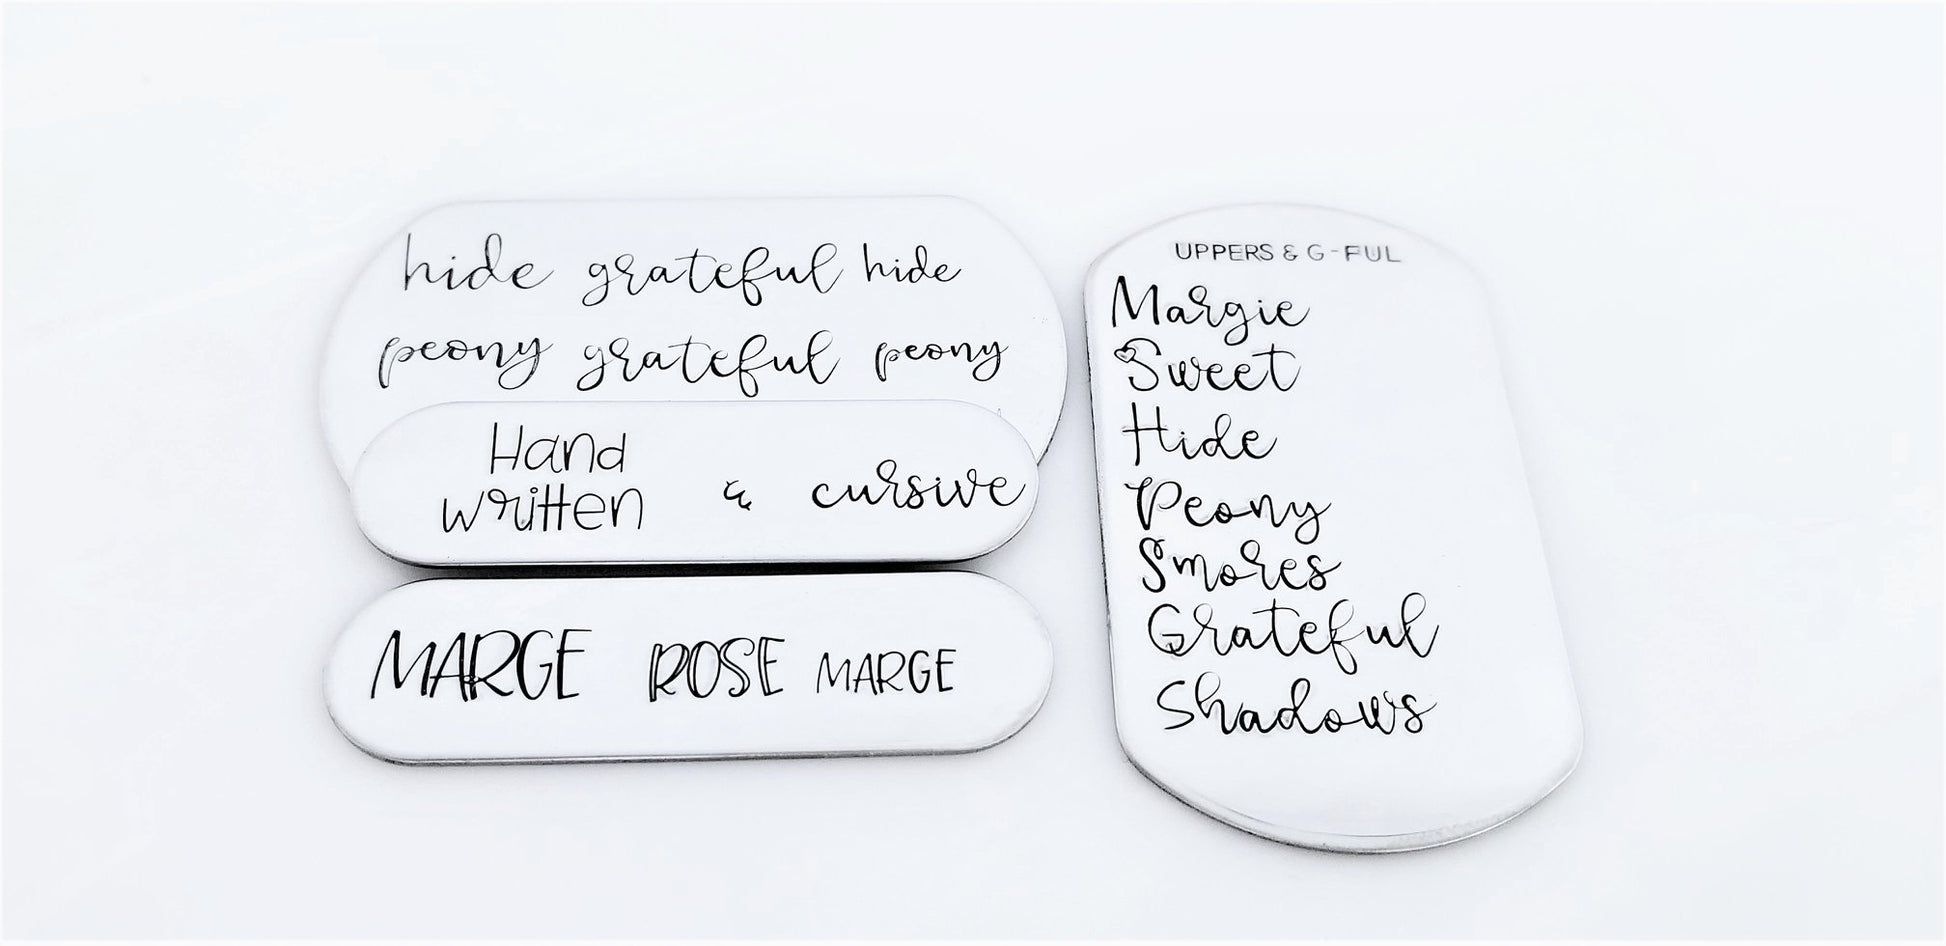 hide grateful hide
peony grateful peony
Hand
written & cursive
MARGE ROSE MARGE
UPPERS & G-FUL
Margie
Sweet
Hide
Peony
Smores
Grateful
Shadows